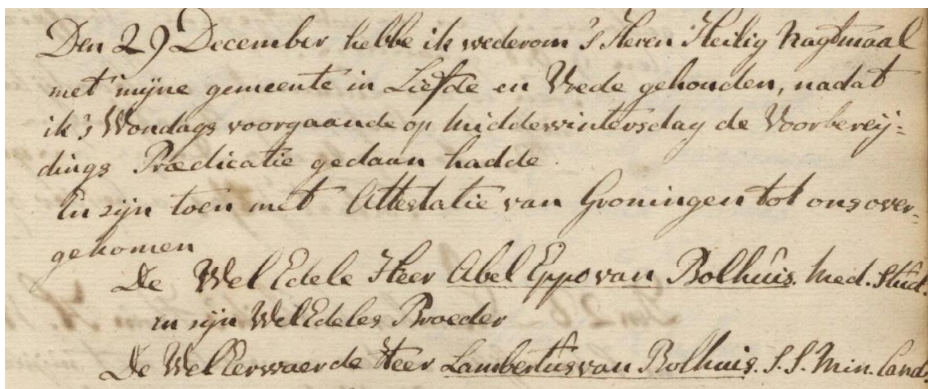 Den 29 December hebbe ik wederom 's Heren Heilig Nagtmaal
met mijne gemeente in Liefde en Vrede gehouden, nadat
ik 's Wondags voorgaande op Middewintersdag de Voorbereij=
dings Prædicatie gedaan hadde.
En zijn toen met Attestatie van Groningen tot ons over=
gekomen
De WelEdele Heer Abel Eppo van Bolhuis. Med. Stud.
en zijn WelEdeles Broeder
De WelEerwaerde Heer Lambertus van Bolhuis. S. S. Min. Cand.